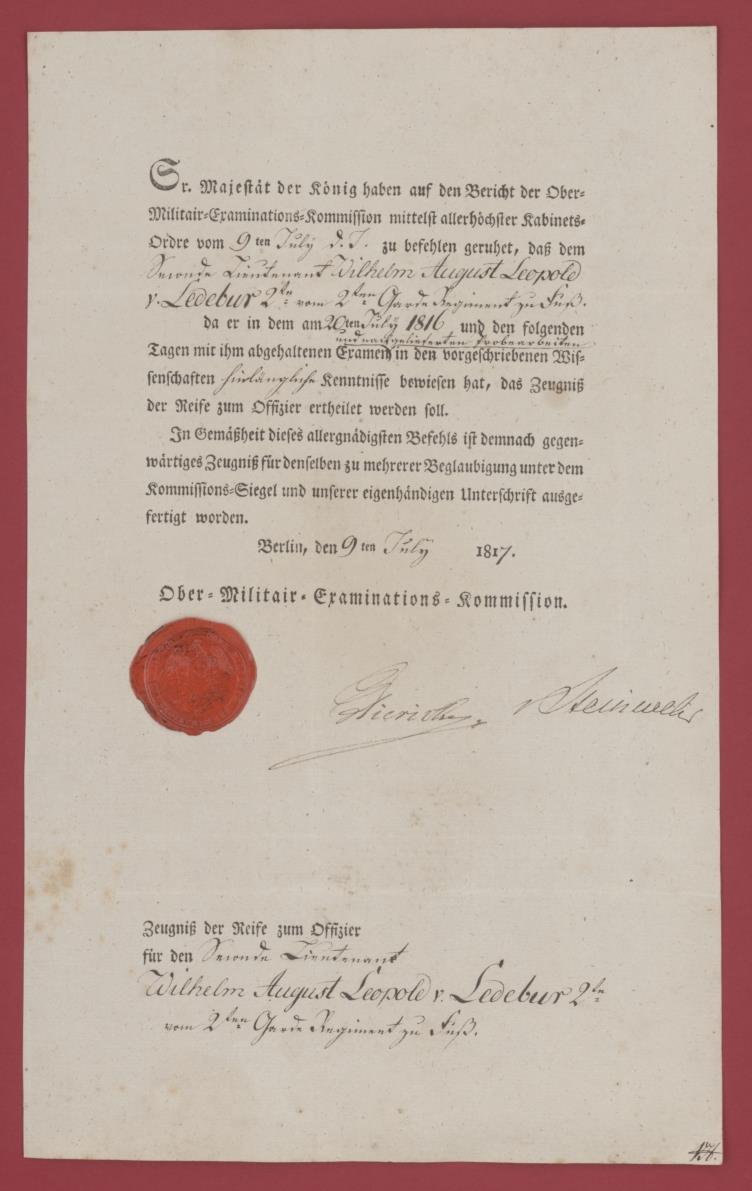 Sr. Majestät der König haben auf den Bericht der Ober-
Militair-Examinations-Kommission mittelst allerhöchster Kabinets-
Ordre vom 9ten July d. J. zu befehlen geruhet, daß dem
Seconde Lieutenant Wilhelm August Leopold
v. Ledebur 2te vom 2ten Garde Regiment zu Fuß.
da er in dem am 20ten July 1816 und den folgenden
und nachgelieferten Probearbeiten
Tagen mit ihm abgehaltenen Examen in den vorgeschriebenen Wis-
senschaften hinlängliche Kenntnisse bewiesen hat, das Zeugniß
der Reife zum Offizier ertheilet werden soll.
In Gemäßheit dieses allergnädigsten Befehls ist demnach gegen-
wärtiges Zeugniß für denselben zu mehrerer Beglaubigung unter dem
Kommissions-Siegel und unserer eigenhändigen Unterschrift ausge-
fertigt worden.
Berlin, den 9ten July 1817.
Ober-Militair-Examinations-Kommission.
v Steinwehr
Zeugniß der Reife zum Offizier
für den Seconde Lieutenant
Wilhelm August Leopold v. Ledebur 2te
vom 2ten Garde Regiment zu Fuß.